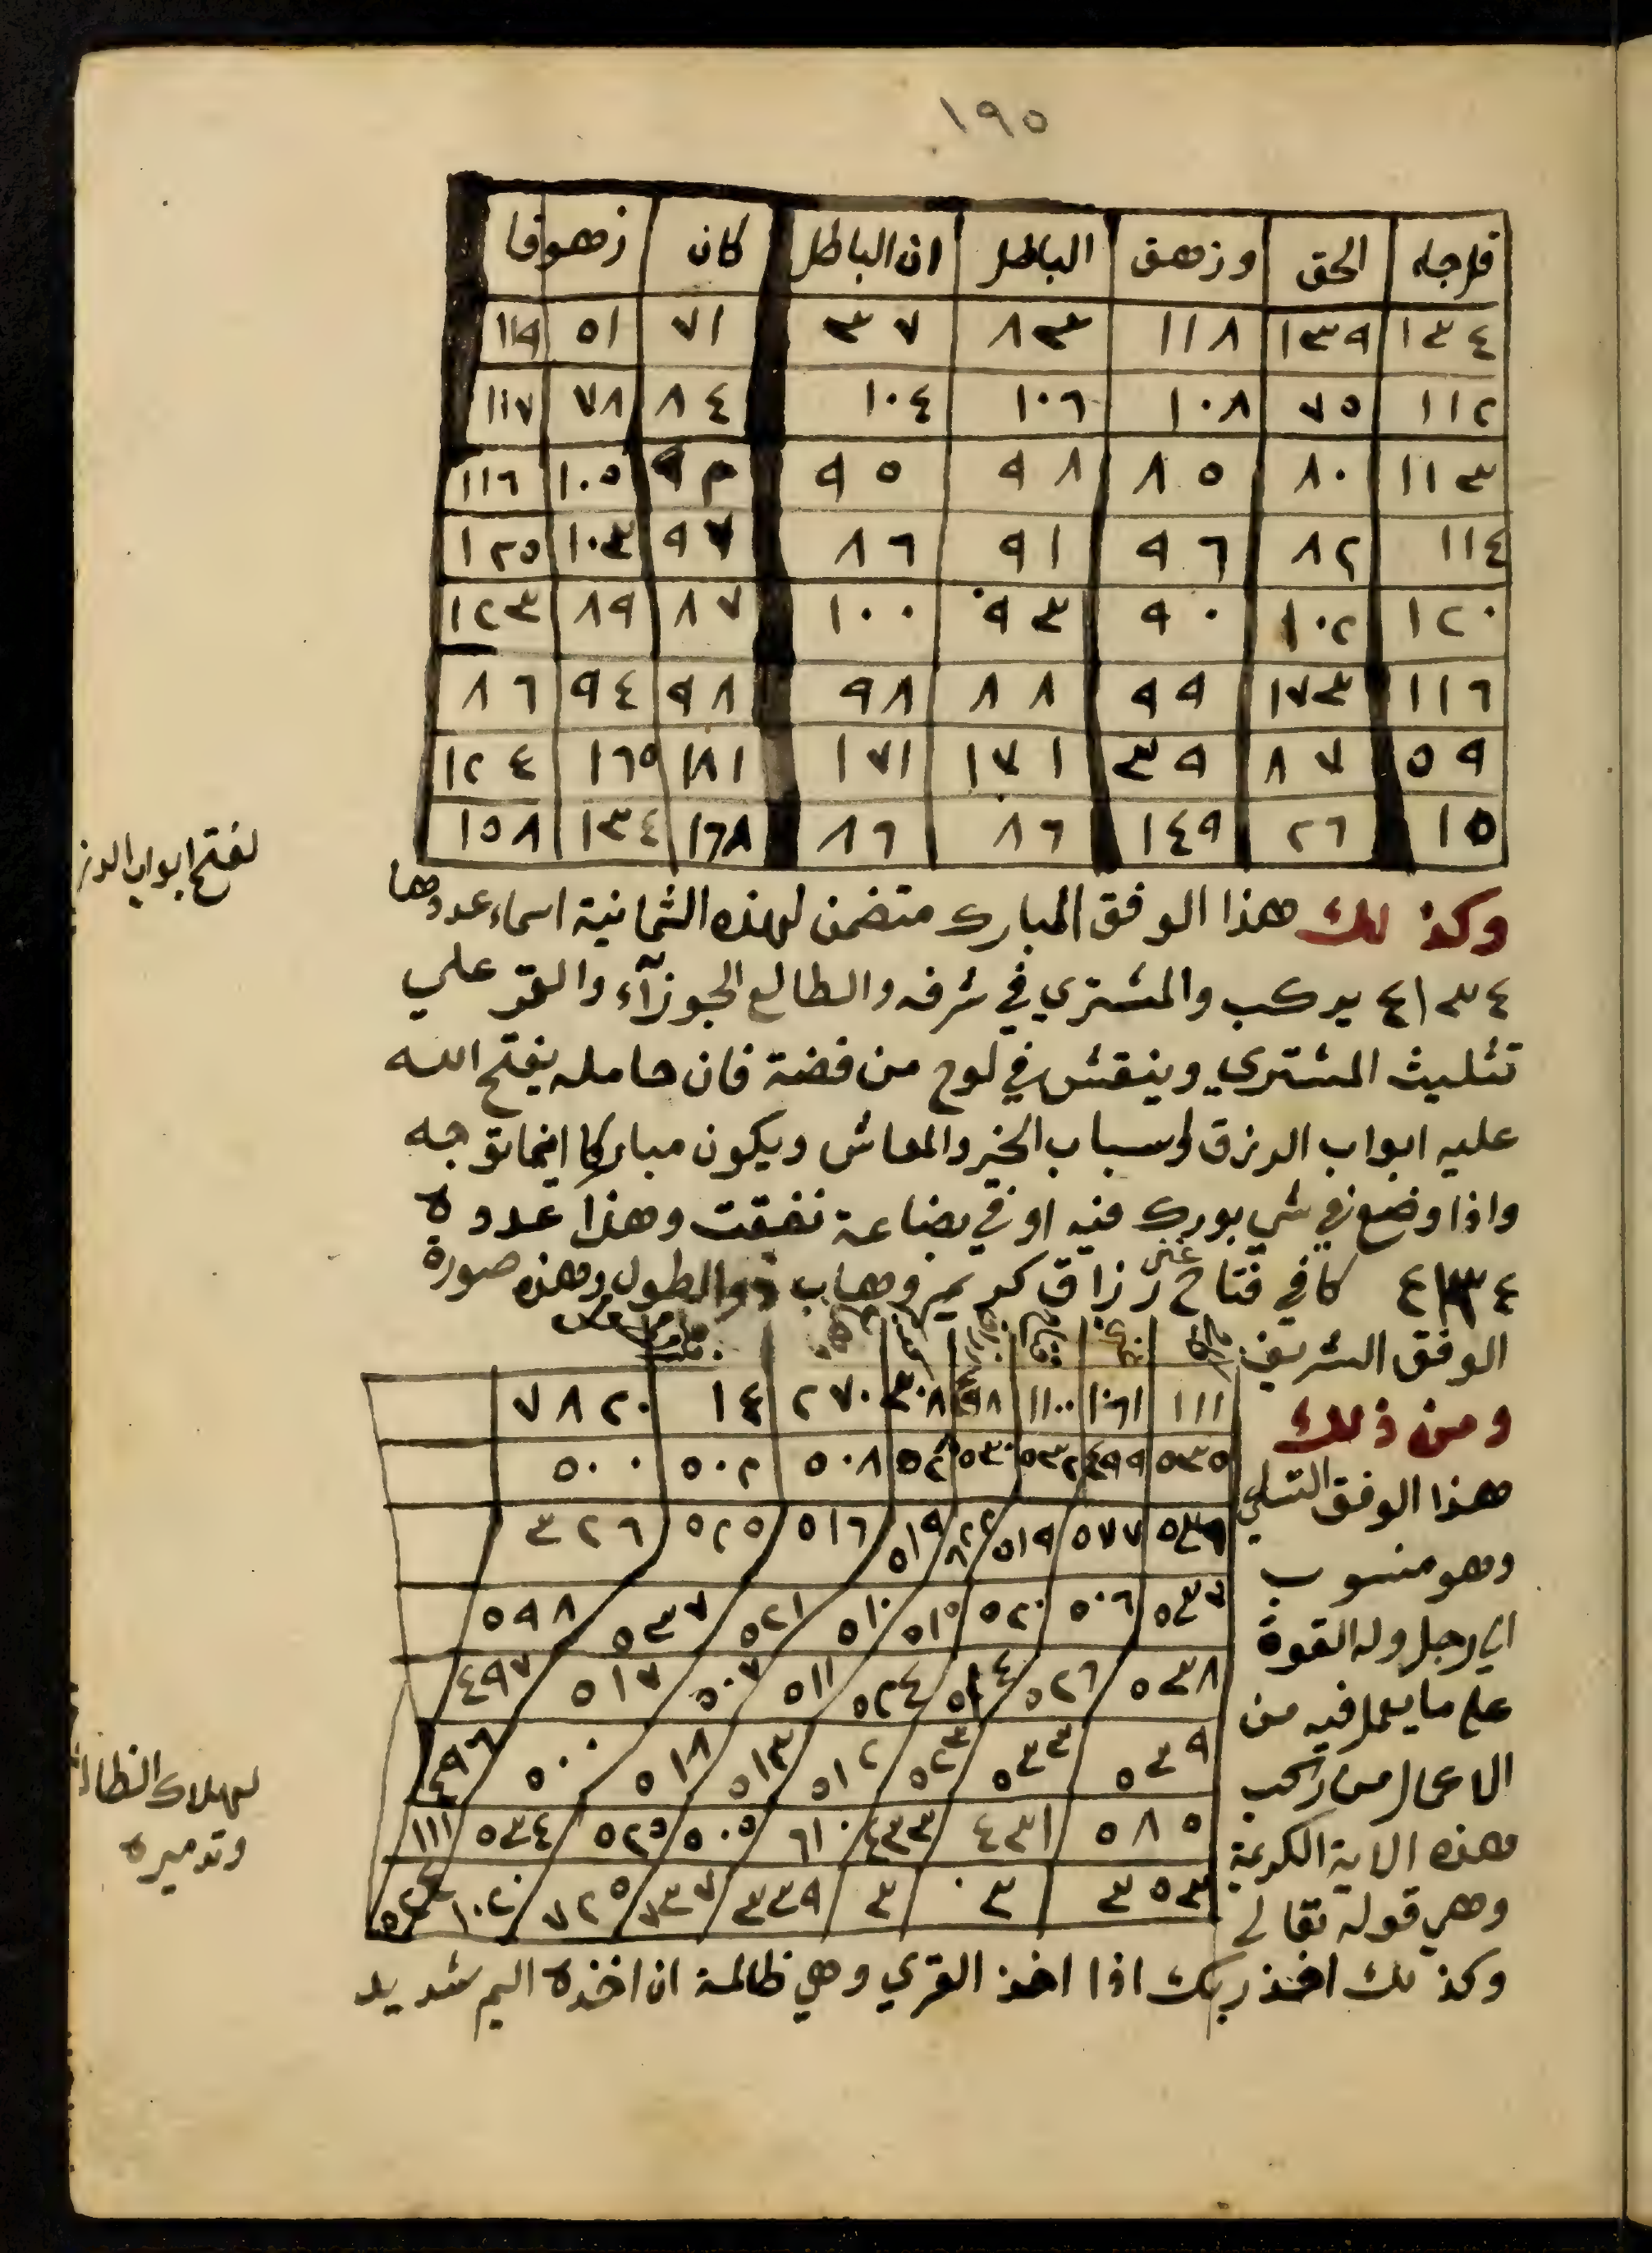 ١٩٥
قل جاء الحق وزهق الباطل ان الباطل كان زهوقا
١٣٤ ١٣٩ ١١٨ ٨٣ ٣٧ ٧١ ٥١ ١١٩
١١٢ ٧٥ ١٠٨ ١٠٦ ١٠٤ ٨٤ ٧٨ ١١٧
١١٣ ٨٠ ٨٥ ٩٨ ٩٥ ٩٢ ١٠٥ ١١٦
١١٤ ٨٢ ٩٦ ٩١ ٨٦ ٩٧ ١٠٣ ١٢٥
١٢٠ ١٠٢ ٩٠ ٩٣ ١٠٠ ٨٧ ٨٩ ١٢٣
١١٦ ١٧٣ ٩٩ ٨٨ ٩٨ ٩٨ ٩٤ ٨٦
٥٩ ٨٧ ٣٩ ١٧١ ١٧١ ١٨١ ١٦٥ ١٢٤
١٥ ٢٦ ١٤٩ ٨٦ ٨٦ ١٦٨ ١٣٤ ١٥٨
لفتح ابواب الرز
وكذلك هذا الوفق المبارك متضمن لهذه الثمانية اسماء عددها
٤١٣٤ يركب والمشتري في شرفه والطالع الجوزآء والقمر علي
تثليث المشتري وينقش في لوح من فضة فان حامله يفتح الله
عليه ابواب الرزق واسباب الخير والمعاش ويكون مباركا اينما توجه
واذا وضع في شي بورك فيه او في بضاعة نفقت وهذا عدده
٤١٣٤ كافي فتاح غني رزاق كريم وهاب ذوالطول وهذه صورة
الوفق الشريف
١١١ ١٠٦١ ١١٠٠ ٣٠٨ ٢٧٠ ١٤ ٧٨٢٠
٥٣٥ ٤٩٩ ٥٣٢ ٥٣٠ ٥٠٨ ٥٠٢ ٥٠٠
٥٣٦ ٥٧٧ ٥١٩ ٥١٩ ٥١٦ ٥٢٥ ٣٢٦
٥٣٧ ٥٠٦ ٥٢٠ ٥١٥ ٥١٠ ٥٢١ ٥٣٧ ٥٩٨
٥٣٨ ٥٢٦ ٥١٤ ٥٢٤ ٥١١ ٥٠٧ ٥١٧ ٤٩٧
٥٣٩ ٥٣٣ ٥٢٣ ٥١٢ ٥١٣ ٥١٨ ٥٠٠ ٤٩٦
٥٨٥ ٤٣١ ٤٣٣ ٦١٠ ٥٠٥ ٥٢٥ ٥٣٤ ١١١
٣٥٣ ٣٠ ٣ ٣٣٩ ٧٣٧ ٧٢٥ ١٠٢٠
ومن ذلك
هذا الوفق
وهو منسوب
الي زحل وله القوة
علي ما يعمل فيه من
الاعمال من ركب
هذه الاية الكريمة
وهي قوله تعالي
لهلاك الظالم
وتدميره
وكذلك اخذ ربك اذا اخذ القري وهي ظالمة ان اخذه اليم شديد